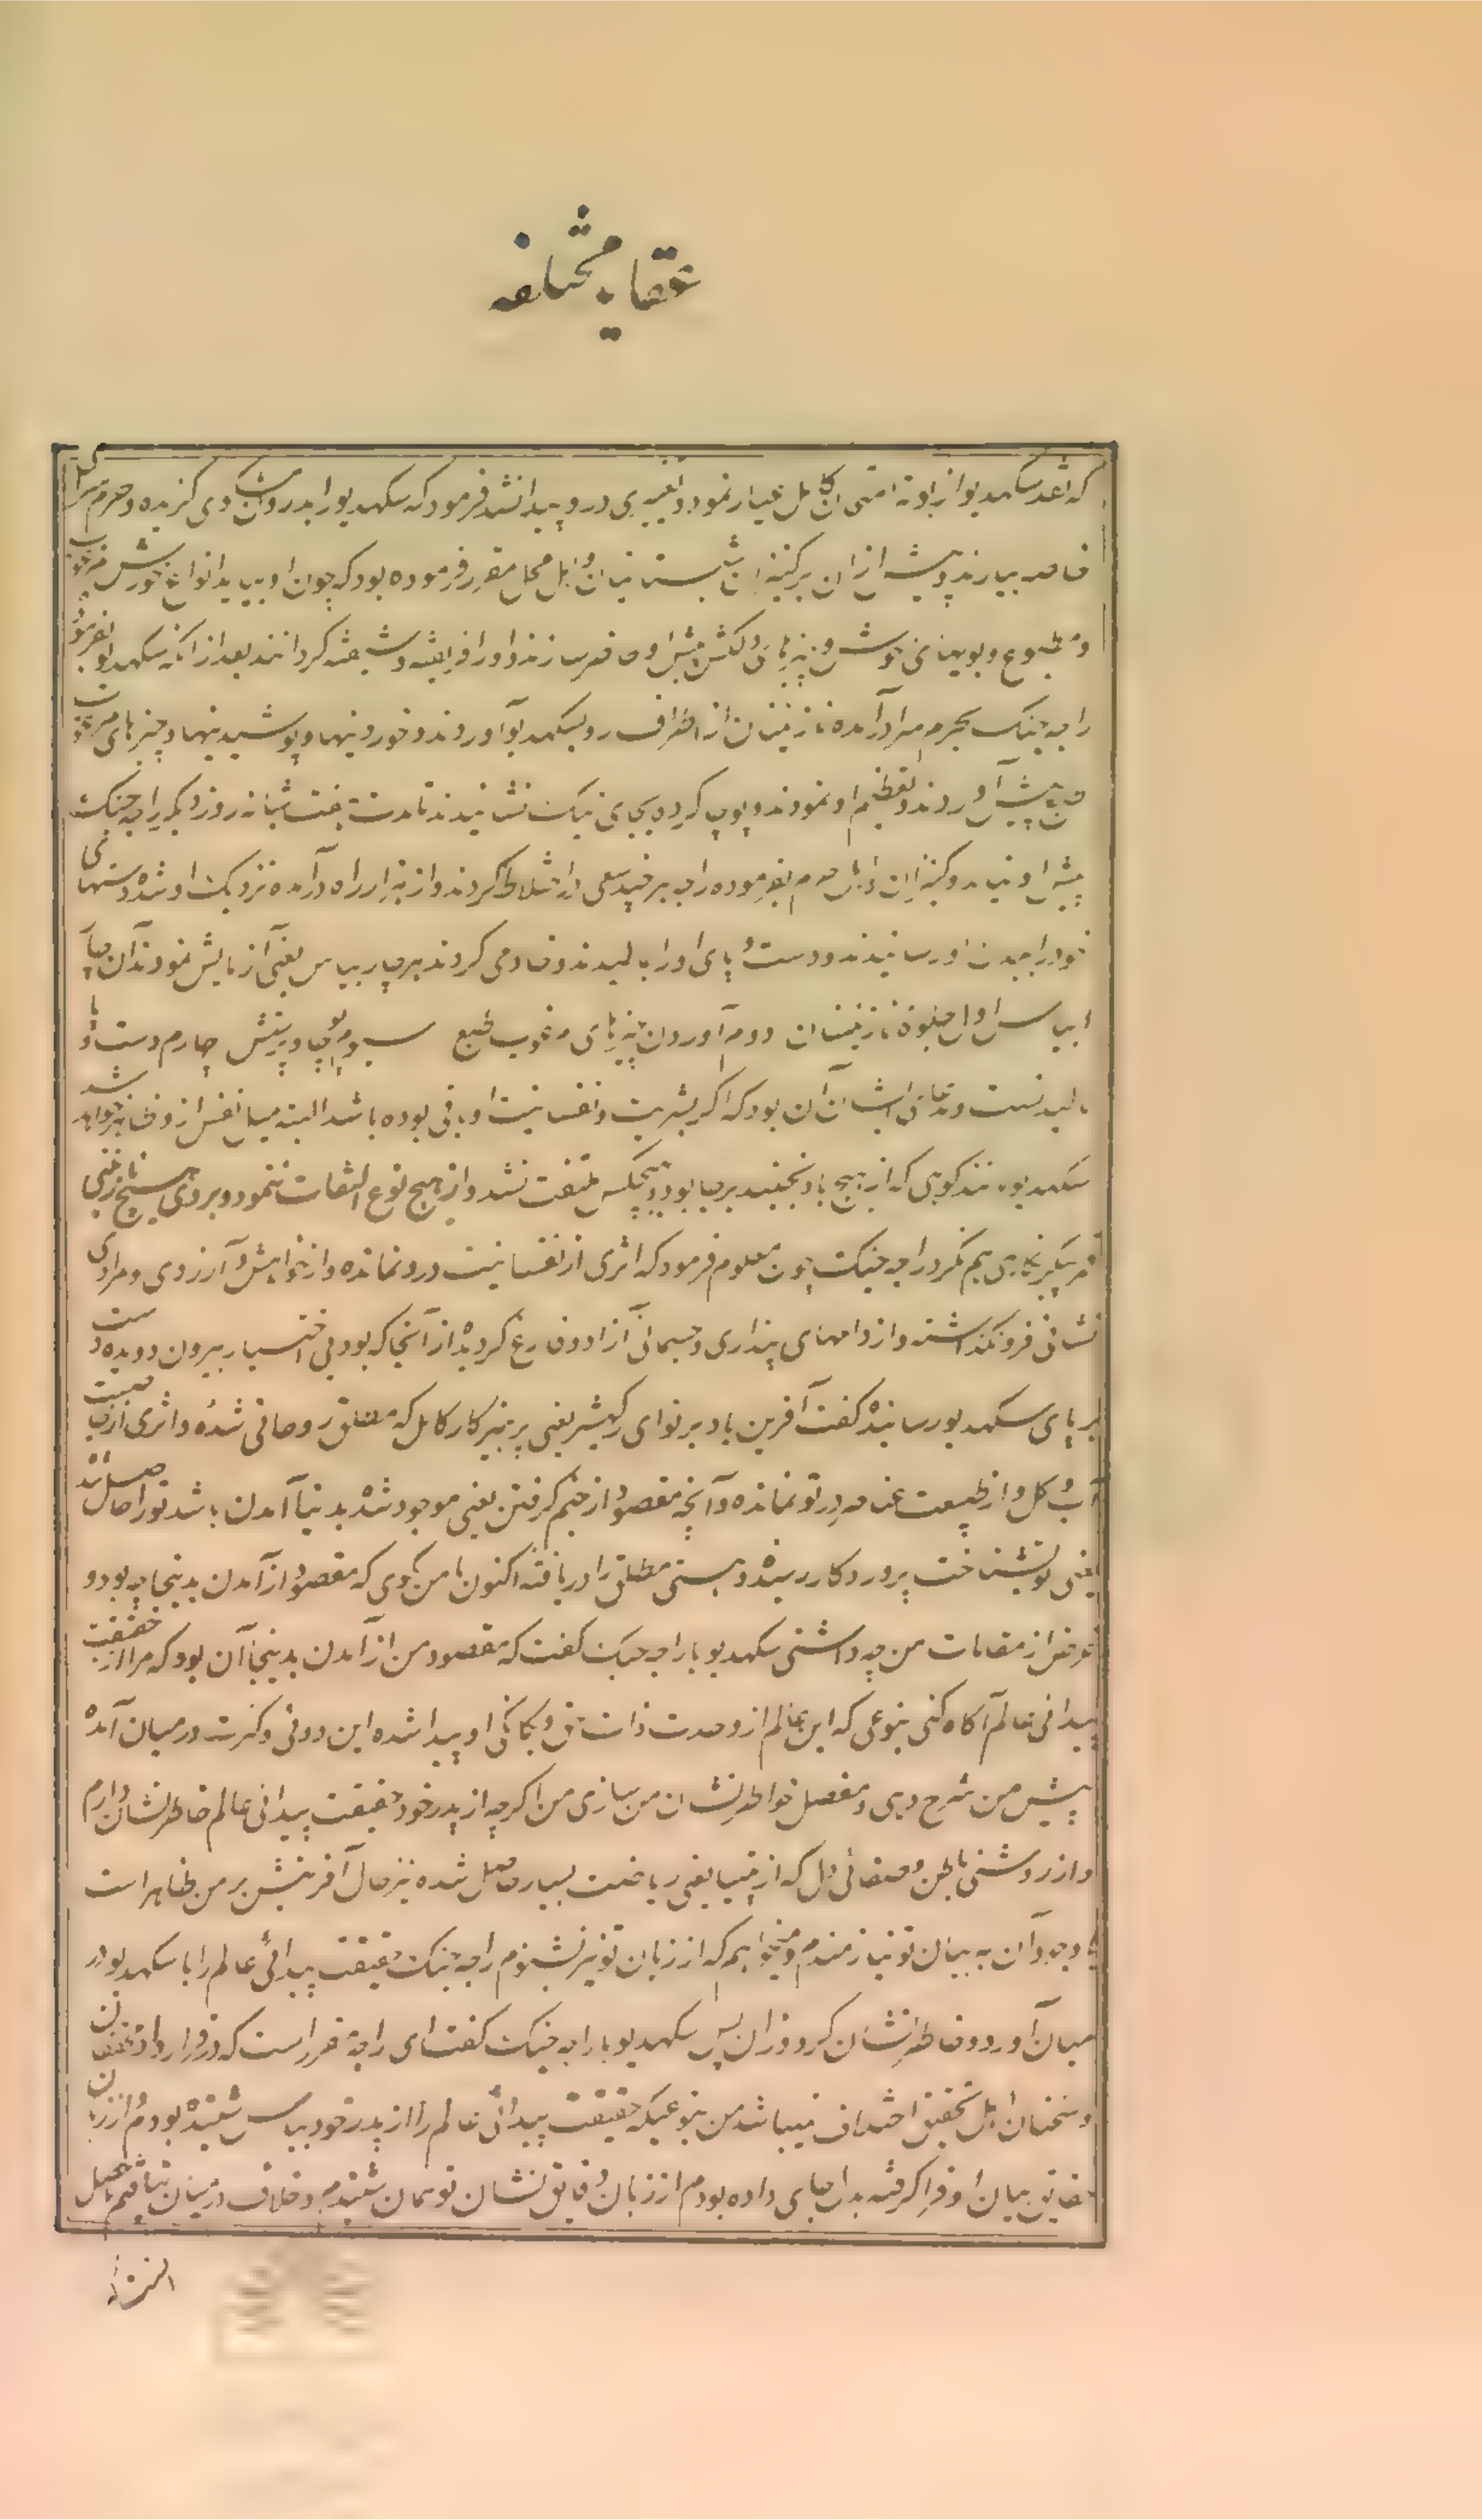 عقاید مختلفه
که نقد سکهدیو از بوته امتحان کامل عیار نمود و تغییری در و پیدا نشد فرمود که سکهدیو را بدرون دی کزیده و حرم سرای
خاصه بیارند و پیش از ان بر کنیزان شبستان و اهل محل مقرر فرموده بود که چون او بیاید انواع خورش مرغوب
و مطبوع و بویهای خوش و چیزهای دلکش پیش او حاضر سازند و او را فریفته و شیفته کردانند بعد از انکه سکهدیو بفرموده
راجه جنک بحرم سرا درآمد نازنینان از اطراف رو بسکهدیو آوردند و خوردنیها و پوشیدنیها و چیزهای مرغوب
پیش آوردند و تعظیم او نمودند و پوجا کرده بجای نیک نشانیدند تا مدت هفت شبانه روز دیکر راجه جنک
پیش او نیامد و کنیزان و اهل حرم بفرموده راجه هر چند سعی در اختلاط کردند و از هزار راه درآمده نزدیک او شده دستهای
خود را ببدن او رسانیدند و دست و پای او را مالیدند و خادمی کردند بهر چار بیاس یعنی آزمایش نمودند آن چار
ابیاس اول جلوه نازنینان دوم آوردن چیزهای مرغوب طبع سیوم پوجا و پرستش چارم دست و پا
مالیدنست و مدعای ایشان آن بود که اکر بشریت و نفسانیت او باقی بوده باشد البته میل نفس از و ظاهر خواهد شد
سکهدیو مانند کوهی که از هیچ باد نجنبد بر جا بود و بهیچکس ملتفت نشد و از هیچ نوع التفات ننمود و بروی هیچ نازنینی
قمر پیکر نکاهی هم نکرد راجه جنک چون معلوم فرمود که اثری از نفسانیت در و نمانده و از خواهش و آرزوی و مرادی
نشانی فرو نکذاشته و از دامهای پنداری و جسمانی آزاد و فارغ کردیده از آنجا که بود بی اختیار بیرون دویده دست
بر پای سکهدیو رسانیده کفت آفرین باد بر تو ای رکهیشر یعنی پرهیزکار کامل که مطلق روحانی شده و اثری از
آب و کل و از طبیعت عناصر در تو نمانده و آنچه مقصود از جنم کرفتن یعنی موجود شده بدنیا آمدن باشد تو را حاصل شد
یعنی تو بشناخت پروردکار رسیده و هستی مطلق را دریافته اکنون با من بکوی که مقصود از آمدن بدینجا چه بود و
غرض از مقامات من چه داشتی سکهدیو با راجه جنک کفت که مقصود من از آمدن بدینجا آن بود که مرا از حقیقت
پیدائی عالم آکاه کنی بنوعی که این عالم از وحدت ذات حق و یکانکی او پیدا شده این دوئی و کثرت در میان آمده
پیش من شرح دهی و مفصل خاطرنشان من سازی من اکرچه از پدر خود حقیقت پیدائی عالم خاطرنشان دارم
و از روشنی باطن و صفائی دل که از تپسیا یعنی ریاضت بسیار حاصل شده نیز حال آفرینش بر من ظاهر است
با وجود آن به بیان تو نیازمندم و میخواهم که از زبان تو نیز بشنوم راجه جنک حقیقت پیدائی عالم را با سکهدیو در
میان آورد و خاطرنشان کرد و از ان پس سکهدیو با راجه جنک کفت ای راجه مقرر است که در قرارداد محققان
و سخنان اهل تحقیق اختلاف نمیباشد من بنوعیکه حقیقت پیدائی عالم را از پدر خود بیاس شنیده بودم و از زبان
حقایق بیان او فرا کرفته بدل جای داده بودم از زبان دقایق نشان تو همان شنیدم و خلاف در میان نیافتم